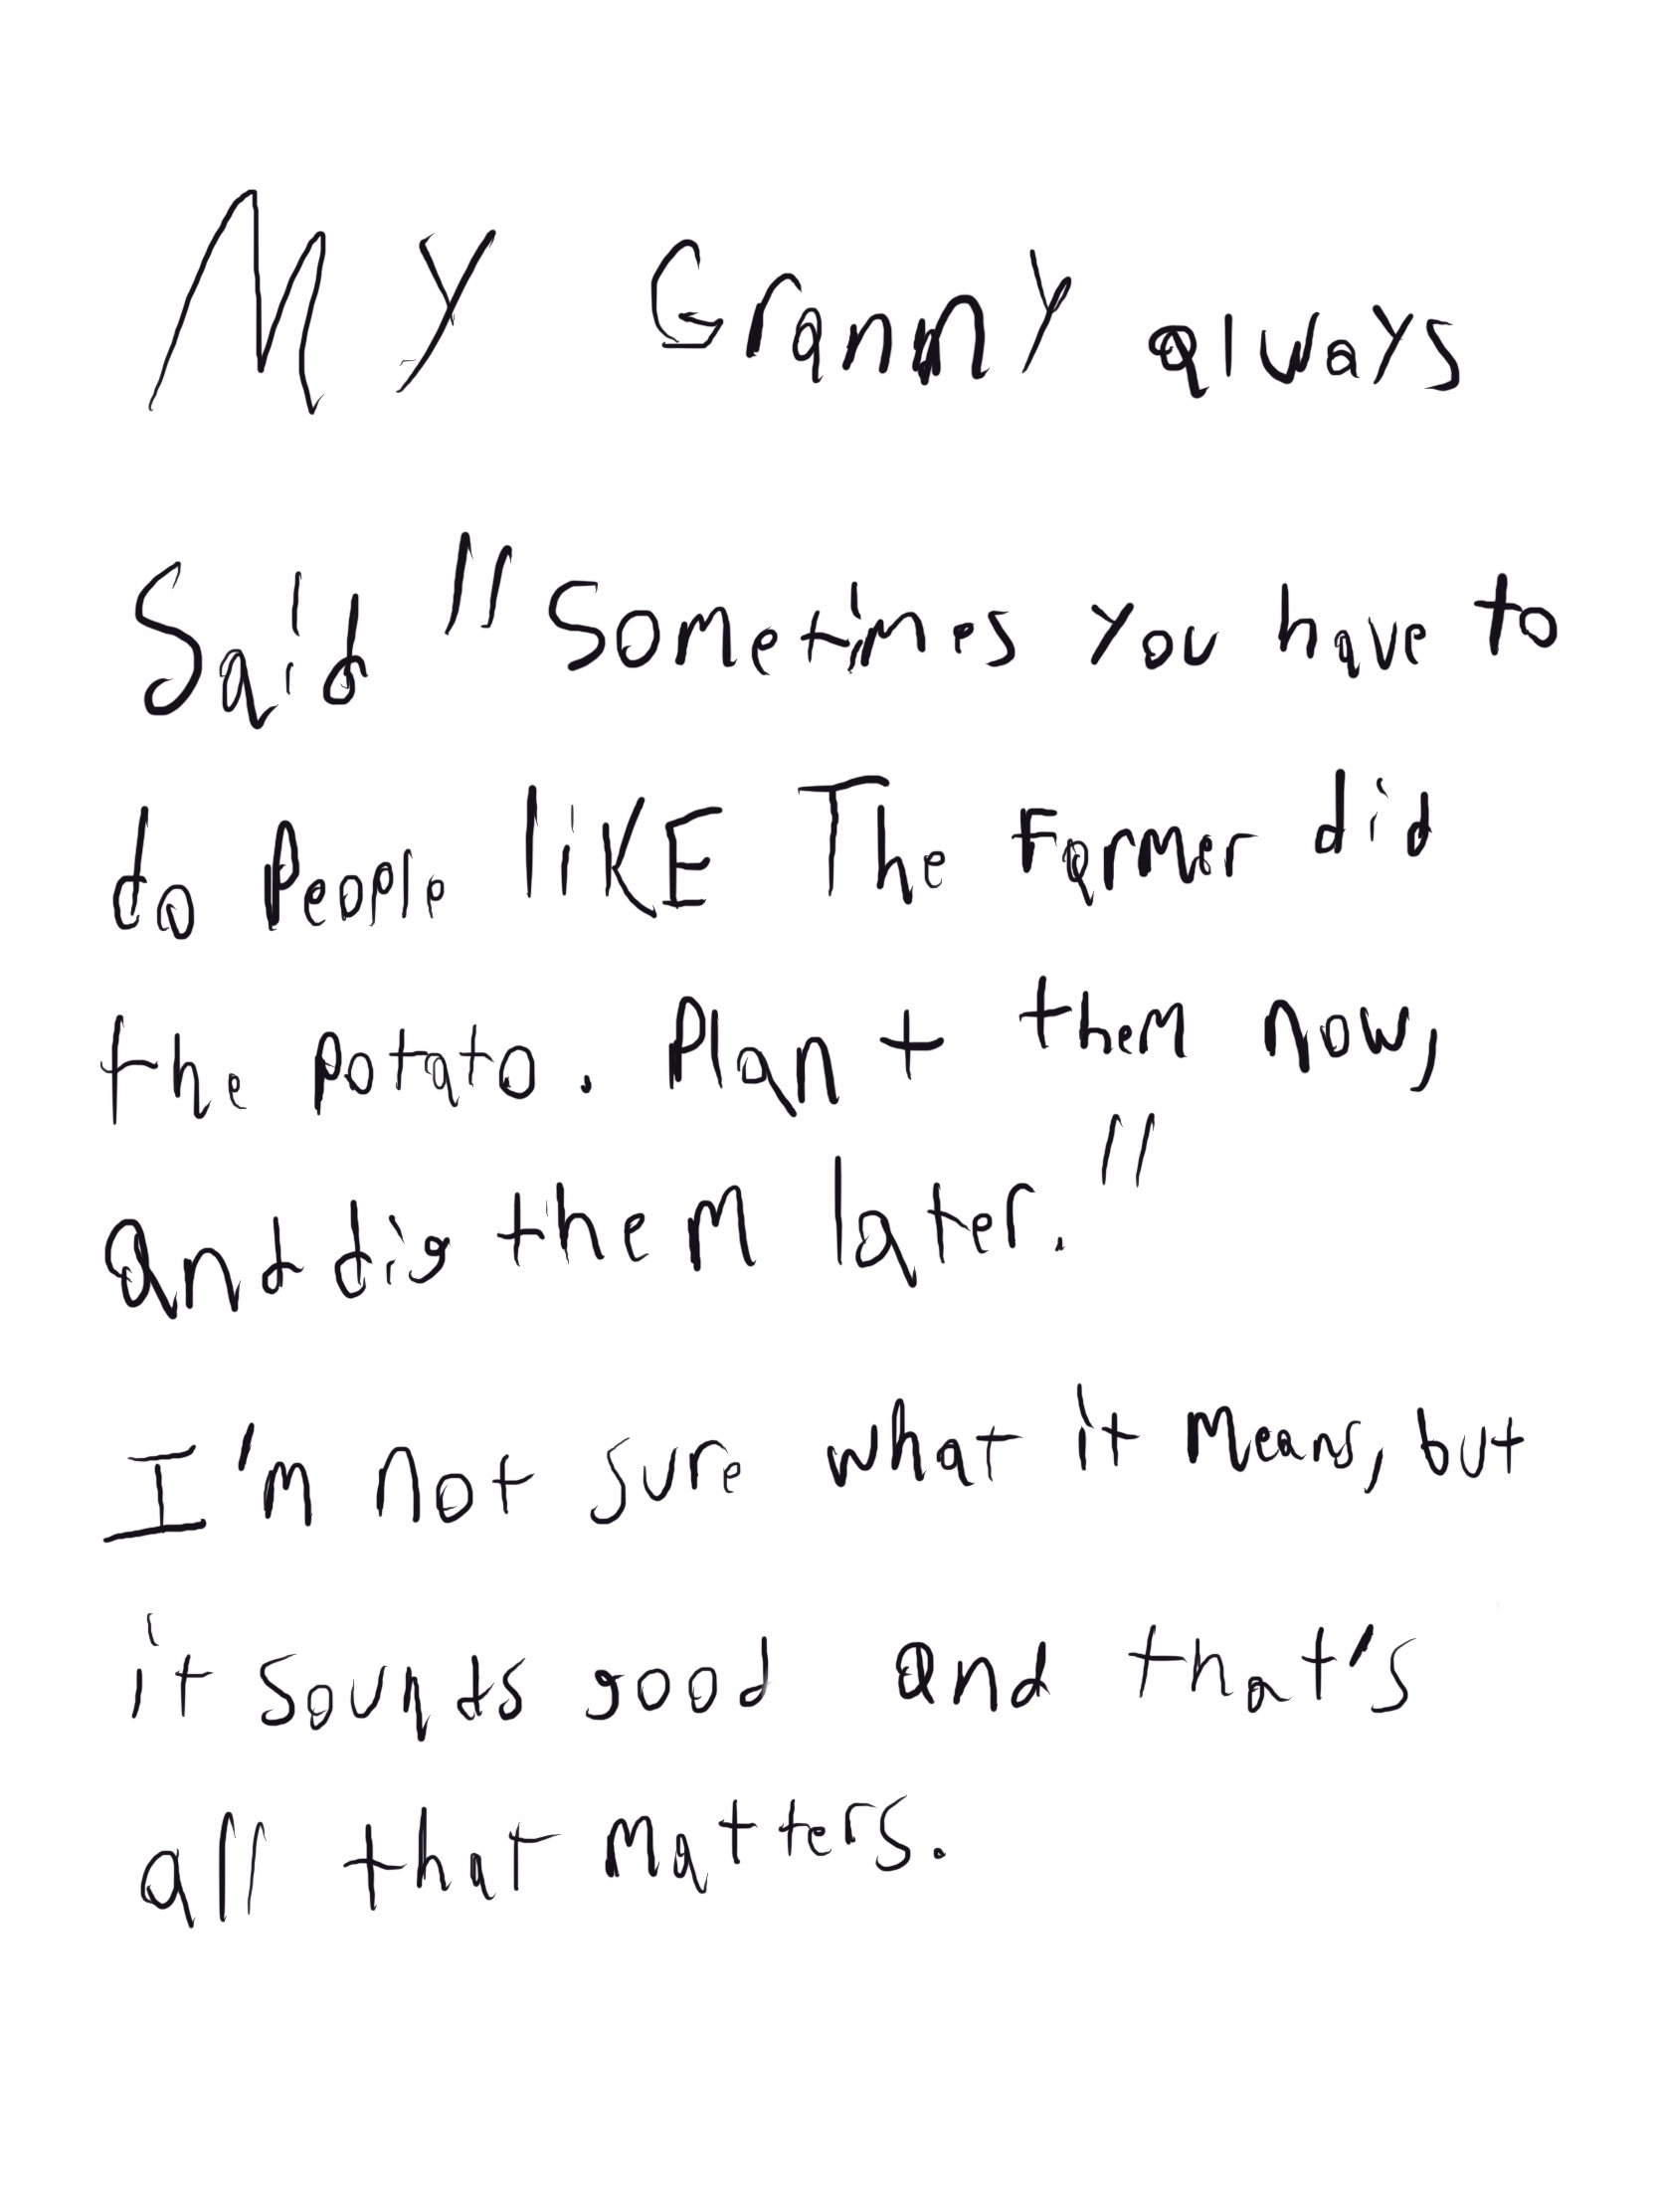 My Granny always
Said "Sometimes you have to
do People liKE The Farmer did
the potato. Plant them now,
and dig them later."
I'm not sure what it means, but
it sounds good and that's
all that matters.